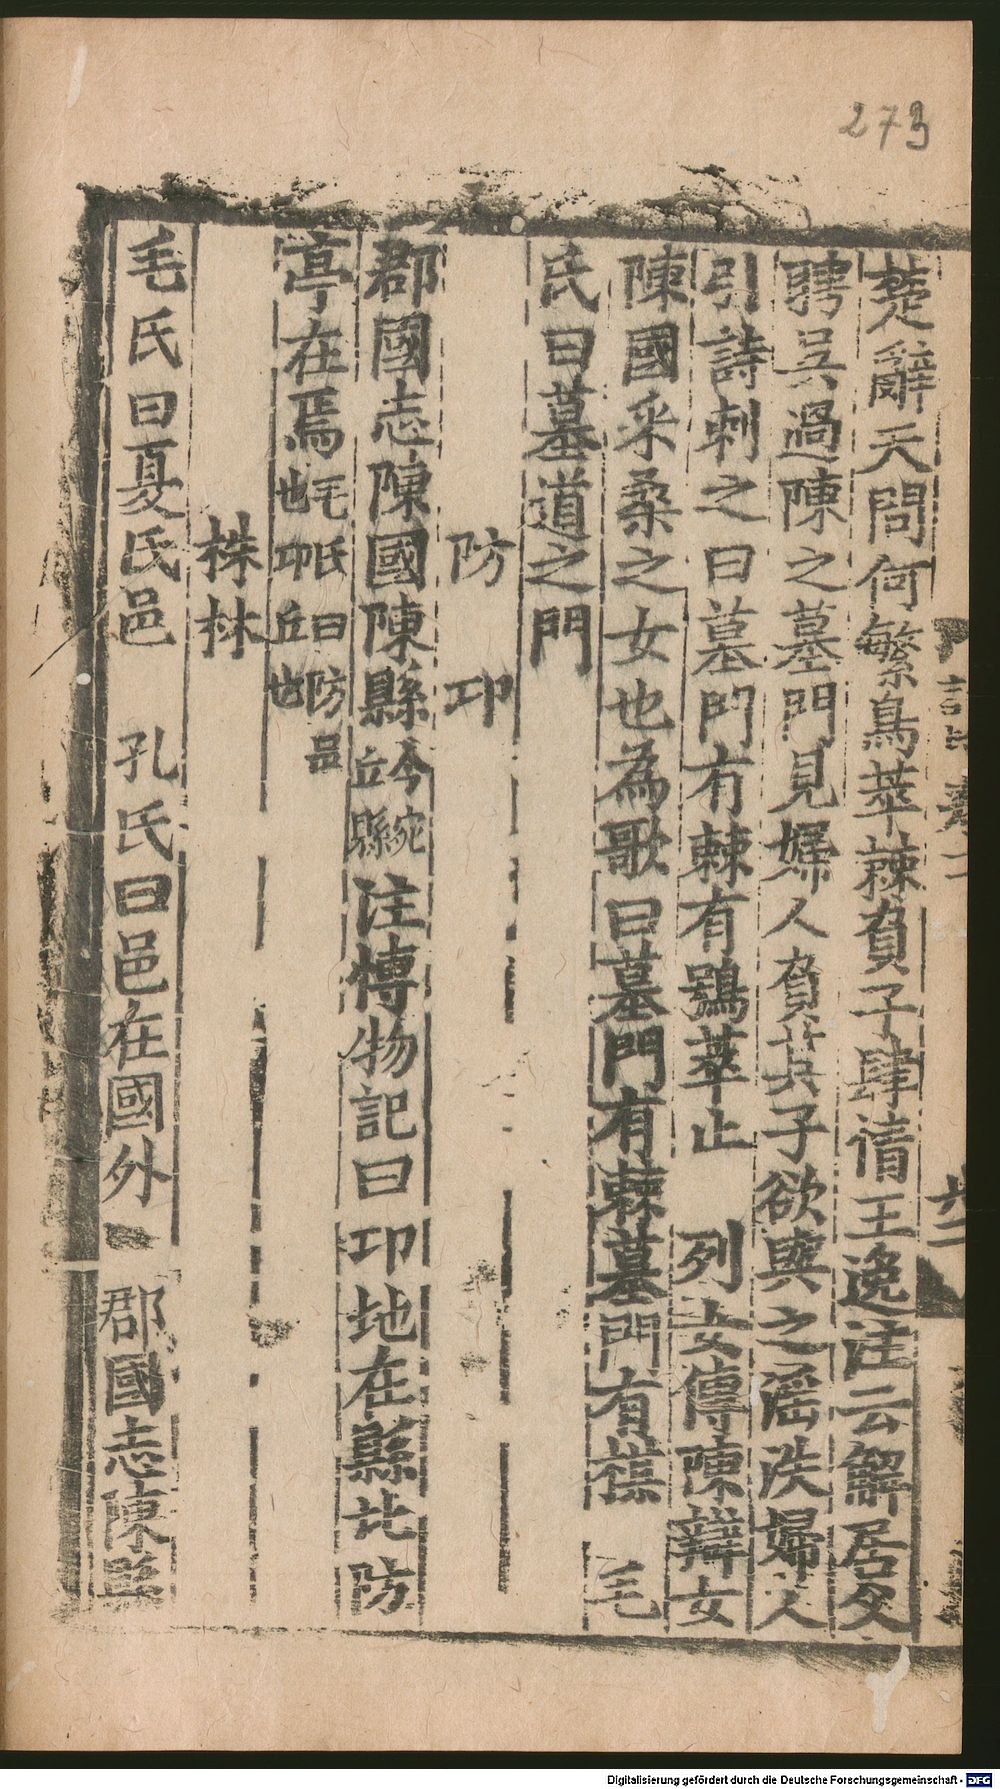 273
楚辭天問何繁鳥萃棘負子肆情王逸注云解居父
聘吳過陳之墓門見婦人負其子欲與之滛泆婦人
引詩刺之曰墓門有棘有鴞萃止 列女傳陳辯女
陳國采桑之女也為歌曰墓門有棘墓門有楳 毛
氏曰墓道之門
防 卭
郡國志陳國陳縣今宛丘縣注博物記曰卭地在縣北防
亭在焉毛氏曰防邑也卭丘也
株林
毛氏曰夏氏邑 孔氏曰邑在國外 郡國志陳縣
Digitalisierung gefördert durch die Deutsche Forschungsgemeinschaft - DFG